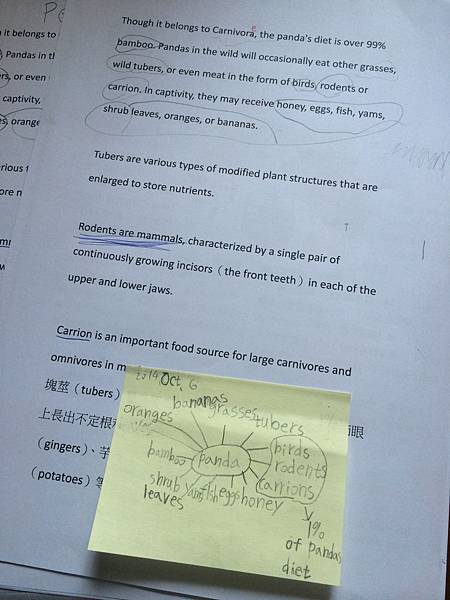 Though it belongs to Carnivora, the panda's diet is over 99%
bamboo. Pandas in the wild will occasionally eat other grasses,
wild tubers, or even meat in the form of birds, rodents or
carrion. In captivity, they may receive honey, eggs, fish, yams,
shrub leaves, oranges, or bananas.
Tubers are various types of modified plant structures that are
enlarged to store nutrients.
Rodents are mammals, characterized by a single pair of
continuously growing incisors (the front teeth) in each of the
upper and lower jaws.
Carrion is an important food source for large carnivores and
omnivores in m
塊莖 (tubers)
上長出不定根
(gingers)、芋
(potatoes) 等
it belongs to
Pandas in th
or even
captivity,
orange
Oct. 6
bananas
grasses
tubers
oranges
birds
rodents
carrions
bamboo
panda
shrub
leaves
yams
fish
eggs
honey
1%
of pandas
diet